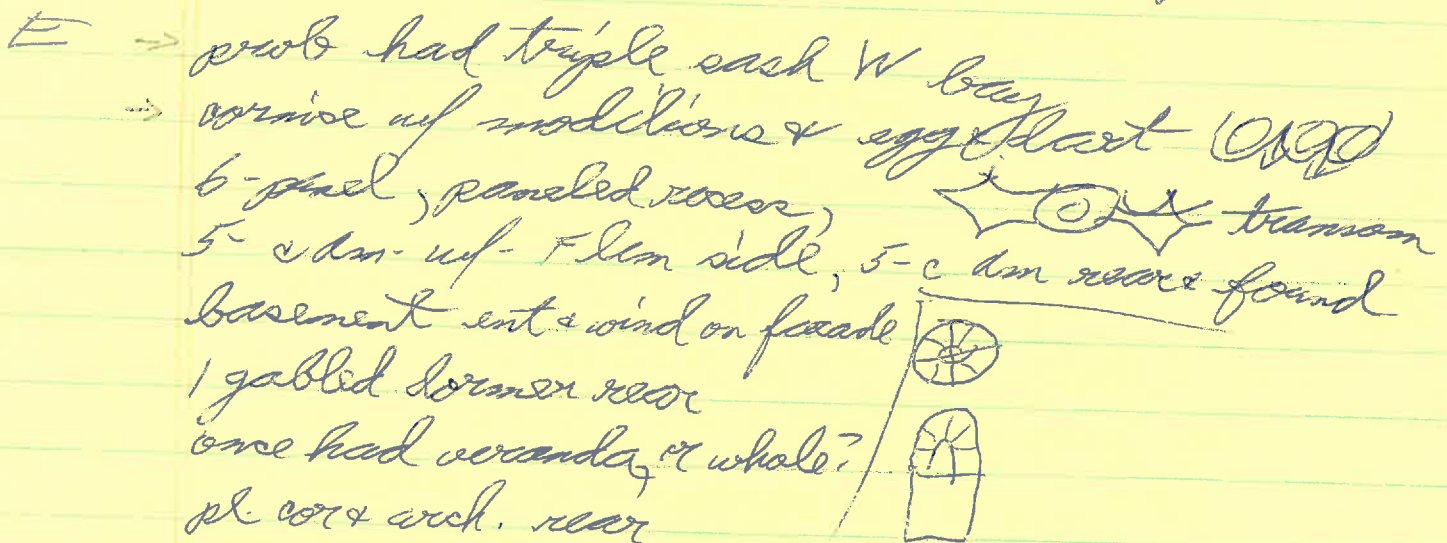 E → prob had triple sash W bay
→ cornise w/ modilions & egg & dart
6-panel, paneled recess, transom
5-c Am- w/- Flem side, 5-c Am rear & found
basement ent & wind on facade
1 gabled dormer rear
once had veranda, r whole?
pl. cor & arch. rear